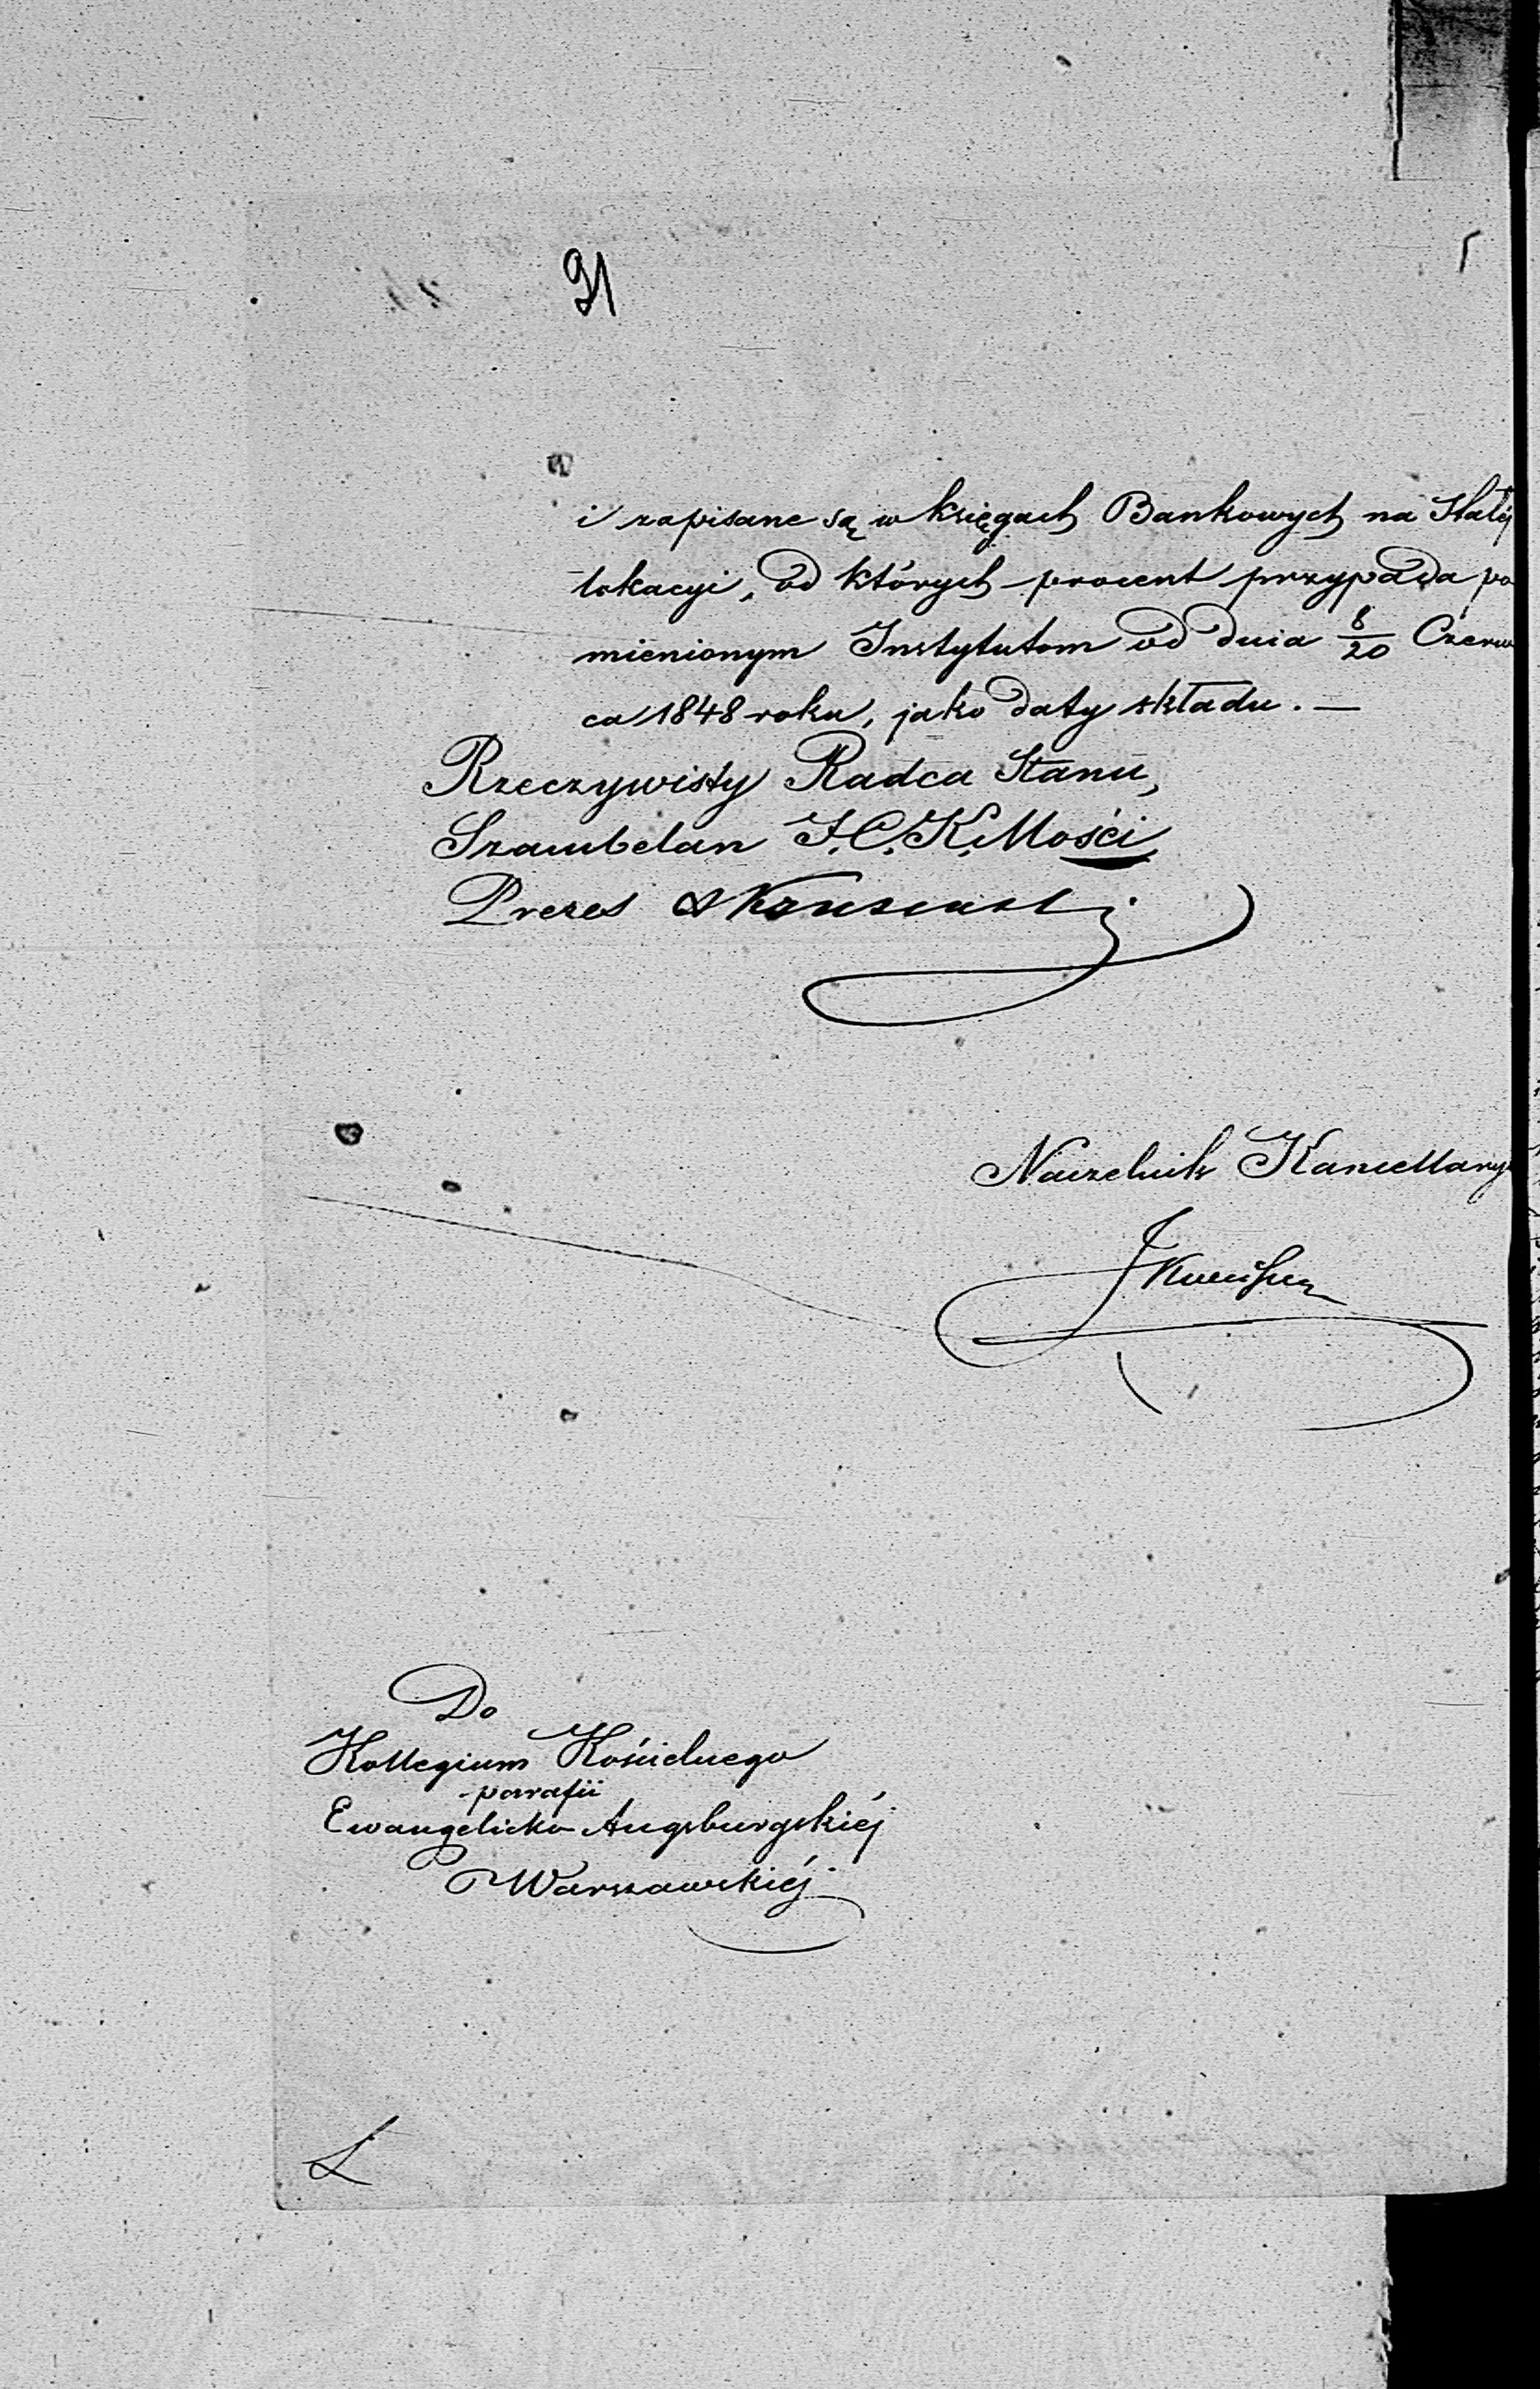 91
i zapisane są w księgach Bankowych na Stałéj
lokacyi, od których procent przypada po
mienionym Instytutom od dnia 8/20 Czerw
ca 1848 roku, jako daty składu. —
Rzeczywisty Radca Stanu,
Szambelan J.C.K.Mości,
Prezes
Naczelnik Kancellaryi
Do
Kollegium Kościelnego
parafii
Ewangelicko Augsburgskiéj
Warszawskiéj